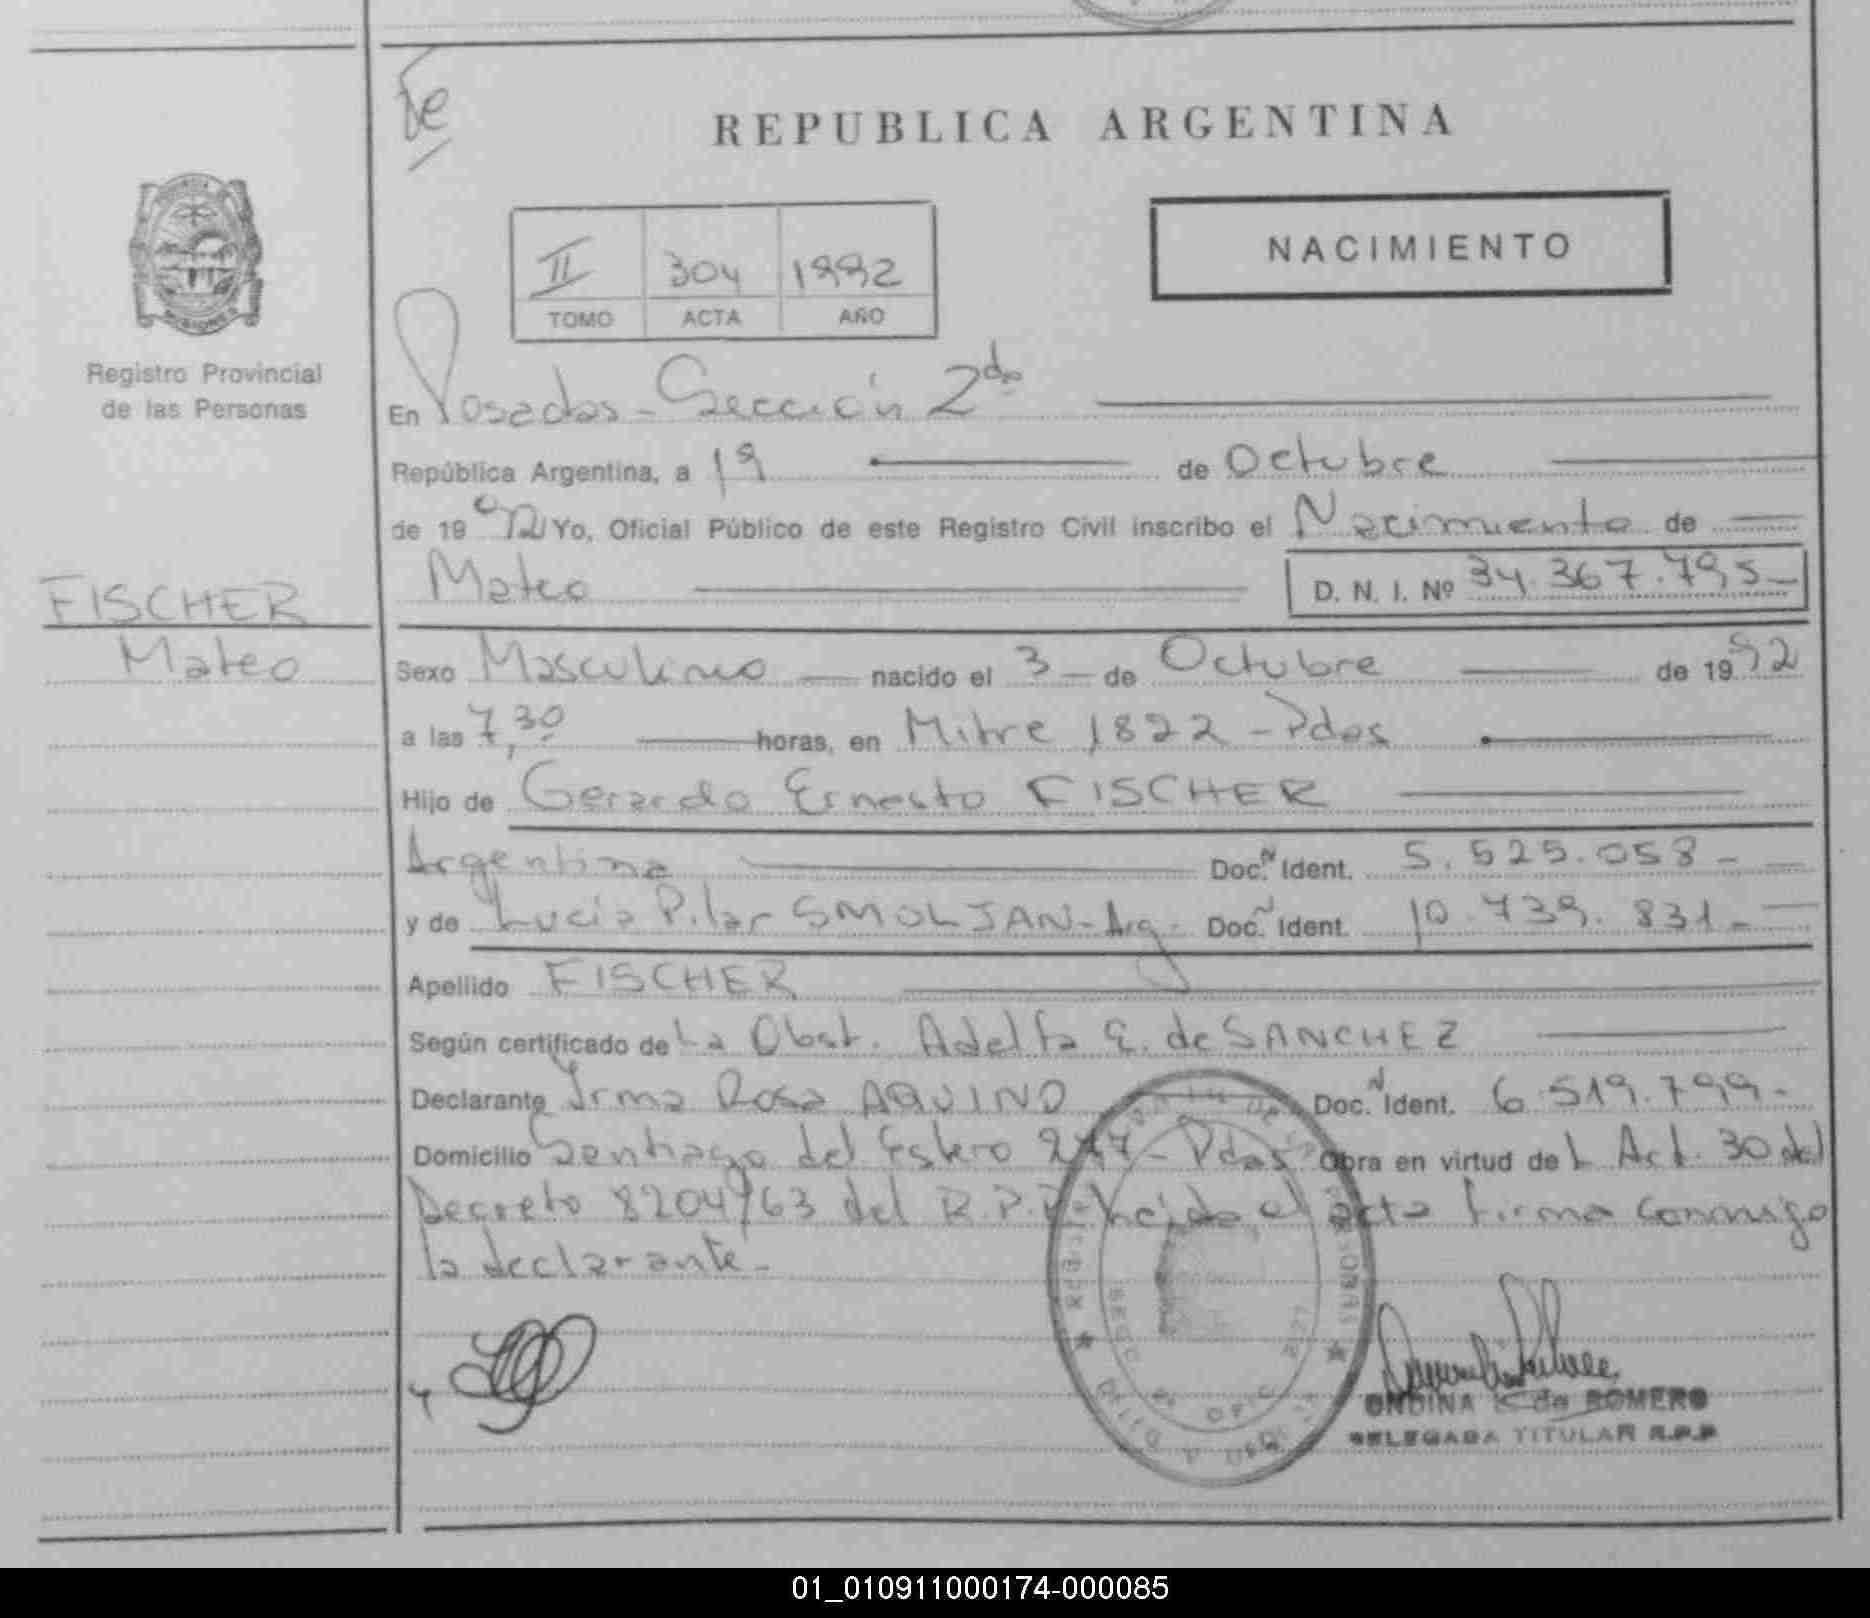 Te
REPUBLICA ARGENTINA
NACIMIENTO
II 304 1992
TOMO ACTA AÑO
MISIONES
Registro Provincial
de las Personas
En Posadas - Sección 2da
República Argentina, a 19 de Octubre
de 19 92 Yo, Oficial Público de este Registro Civil inscribo el Nacimiento de
Mateo D. N. I. Nº 34.367.795-
FISCHER
Mateo
Sexo Masculino nacido el 3 de Octubre de 19 92
a las 7,30 horas, en Mitre 1822 - Pdas
Hijo de Gerardo Ernesto FISCHER
Argentina Doc. N Ident. 5.525.058-
y de Lucia Pilar SMOLJAN - Arg. Doc. N Ident. 10.739.831-
Apellido FISCHER
Según certificado de La Obst. Adelfa E. de SANCHEZ
Declarante Irma Rosa AQUINO Doc. N Ident. 6.519.799-
Domicilio Santiago del Estero - Pdas Obra en virtud de l Art. 30 del
Decreto 8204/63 del R.P.P. Leida el acta firma conmigo
la declarante-
ONDINA de ROMERO
DELEGADA TITULAR R.P.P
01_010911000174-000085